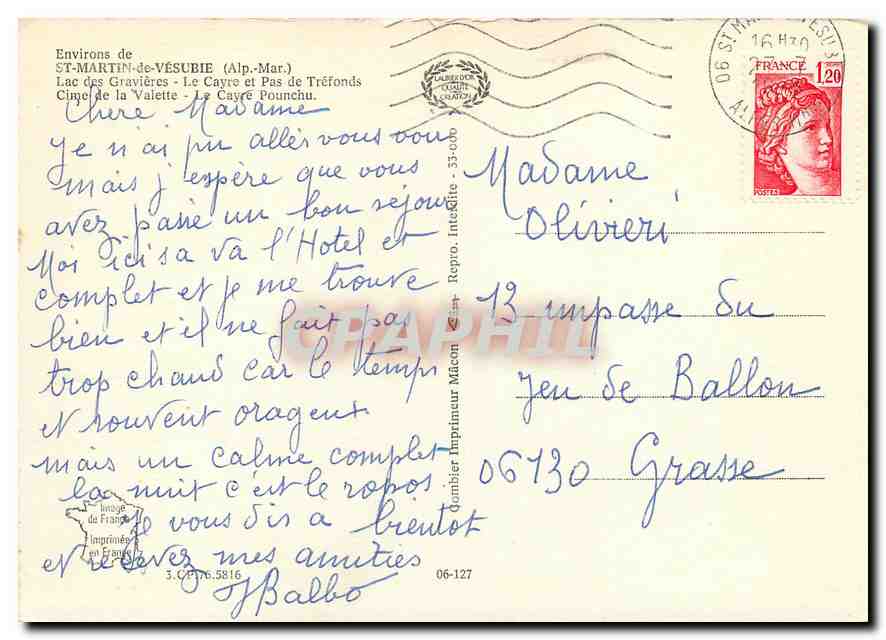 Environs de
ST-MARTIN-de-VÉSUBIE (Alp.-Mar.)
Lac des Gravières - Le Cayre et Pas de Tréfonds
Cime de la Valette - Le Cayre Pounchu.
Chère Madame
Je n'ai pu aller vous voir
mais j'espère que vous
avez passé un bon séjour
Moi ici sa va l'Hotel et
complet et je me trouve
bien et il ne fait pas
trop chaud car le temps
et souvent orageux
mais un calme complet
la nuit c'est le ropos.
Je vous dis a bientot
et recevez mes amitiés
JBalbo
Image
de France
Imprimée
en France
3.CP.76.5816
06-127
Combier Imprimeur Mâcon
Repro. Interdite - 53-000
LAURIER D'OR
QUALITÉ
CRÉATION
06 ST MARTIN VESUBIE
16 H30
FRANCE
1,20
POSTES
Madame
Olivieri
13 impasse du
Jeu de Ballon
06130 Grasse
CPAPHIL